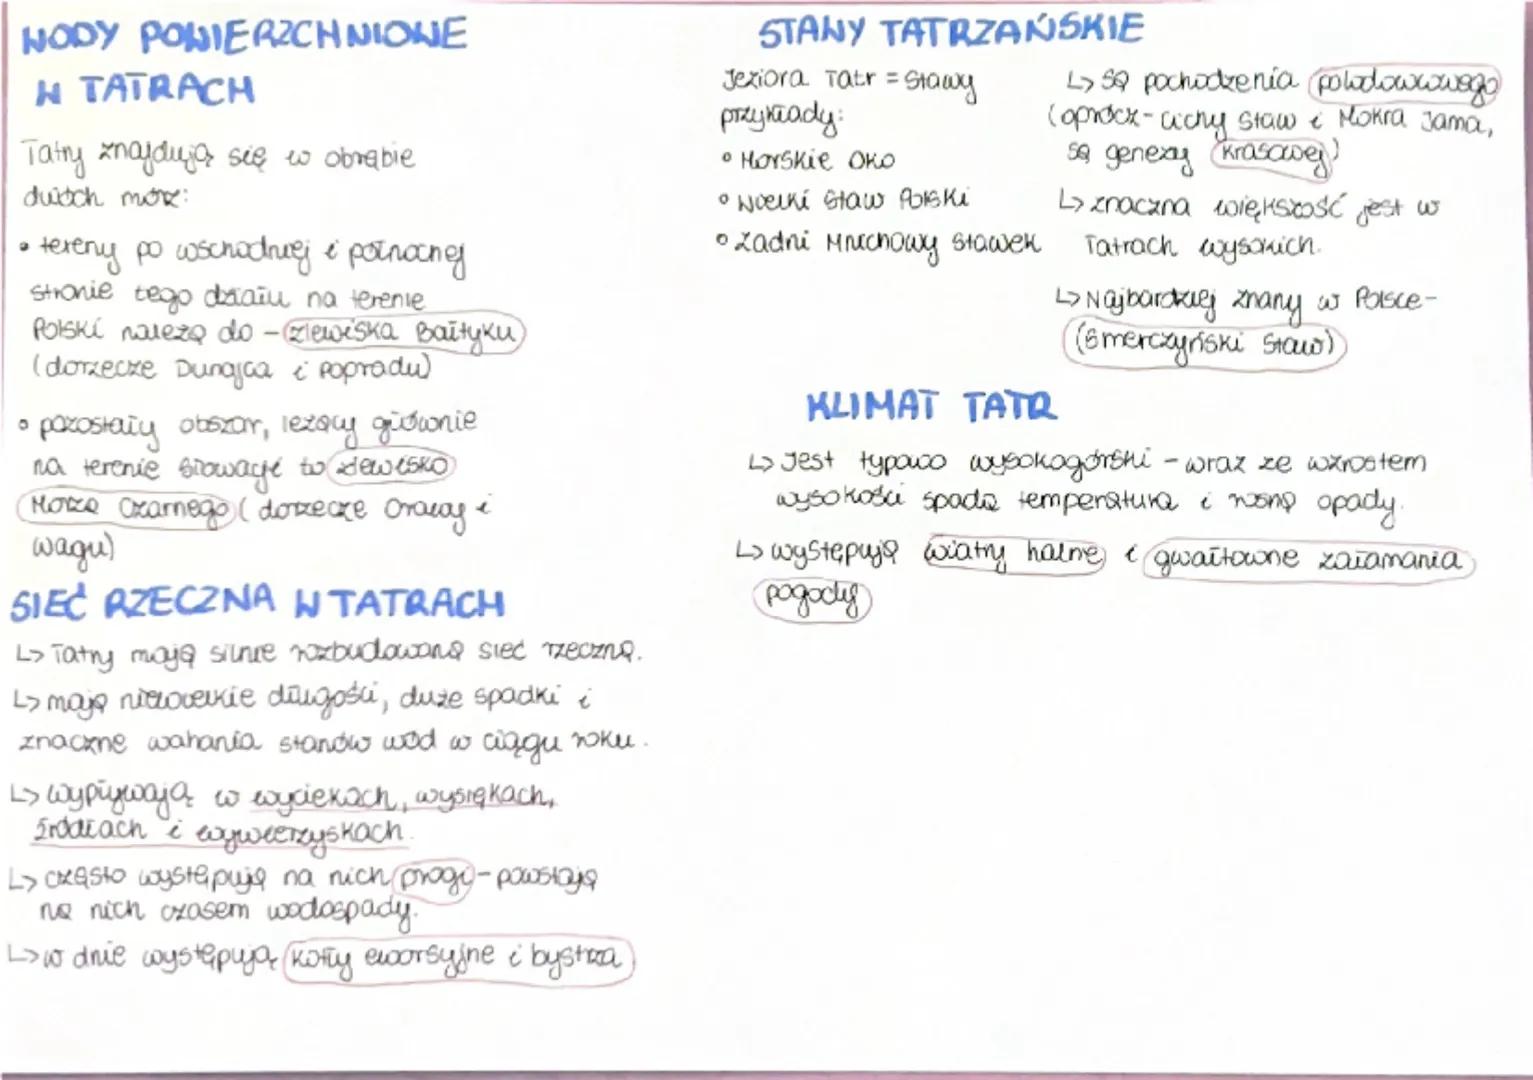 WODY POWIERZCHNIOWE
W TATRACH
Tatry znajdują się w obrąbie
dwóch mórz:
• tereny po wschodniej i północnej
stronie tego działu na terenie
Polski należą do - zlewiska Bałtyku
(dorzecze Dunajca i Popradu)
• pozostały obszar, leżący głównie
na terenie Słowacji to zlewisko
Morza Czarnego (dorzecze Orawy i
wagu)
SIEĆ RZECZNA W TATRACH
↳ Tatry mają silnie rozbudowaną sieć rzeczną.
↳ mają niewielkie długości, duże spadki i
znaczne wahania stanów wód w ciągu roku.
↳ wypływają w wyciekach, wysiękach,
źródłach i wywierzyskach.
↳ często występują na nich progi - powstają
na nich czasem wodospady.
↳ w dnie występują kotły eworsyjne i bystrza
STAWY TATRZAŃSKIE
Jeziora Tatr = Stawy
przykłady:
° Morskie Oko
° Wielki Staw Polski
° Zadni Mnichowy Stawek
↳ są pochodzenia polodowcowego
(oprócz - Cichy Staw i Mokra Jama,
są genezy krasowej)
↳ znaczna większość jest w
Tatrach wysokich.
↳ Najbardziej znany w Polsce -
(Smerczyński Staw)
KLIMAT TATR
↳ Jest typowo wysokogórski - wraz ze wzrostem
wysokości spada temperatura i rosną opady.
↳ występują wiatry halne i gwałtowne załamania
pogody